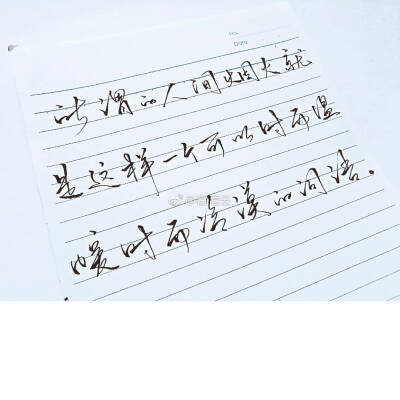 Date
所谓的人间烟火就
是这样一个可以时而温
暖时而冷漠的词语。